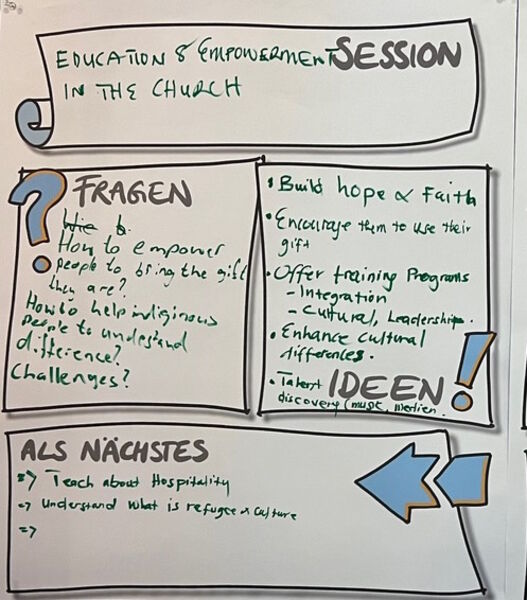 EDUCATION & EMPOWERMENT SESSION
IN THE CHURCH
? FRAGEN
Wie b.
How to empower
people to bring the gift
they are?
How to help indiginous
people to understand
difference?
Challenges?
• Build hope & Faith
• Encourage them to use their
gift
• Offer training Programs
- Integration
- Cultural, Leadership.
• Enhance cultural
differences.
• Talent
discovery (music,
IDEEN!
ALS NÄCHSTES
=> Teach about Hospitality
=> Understand what is refugee & culture
=>